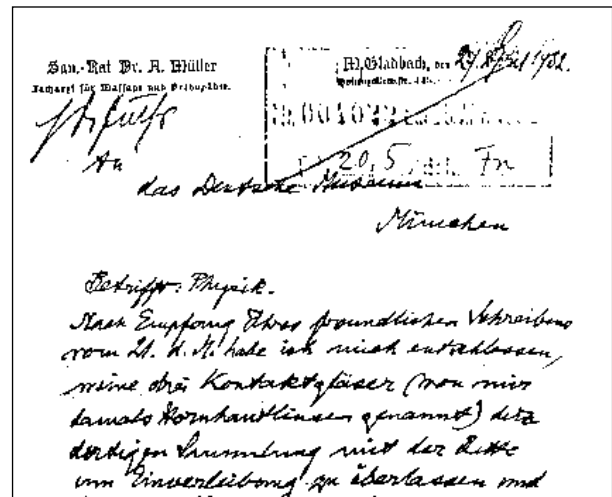 San.-Rat Dr. A. Müller
Facharzt für Massage und Orthopädie.
M. Gladbach, den 27. April 1932.
001022
20,5 Fn
An
das Deutsche Museum
München
Betrifft: Physik.
Nach Empfang Ihres freundlichen Schreibens
vom 21. d. M. habe ich mich entschlossen,
meine drei Kontaktgläser (von mir
damals Hornhautlinsen genannt) der
dortigen Sammlung mit der Bitte
um Einverleibung zu überlassen und